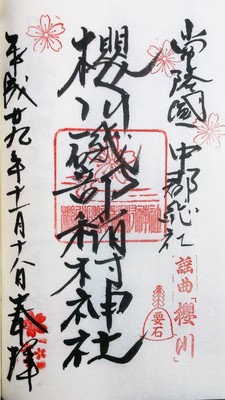 常陸國 中郡
謡曲「櫻川」
要石
櫻川磯部稲村神社
平成廿九年十一月十八日奉拝